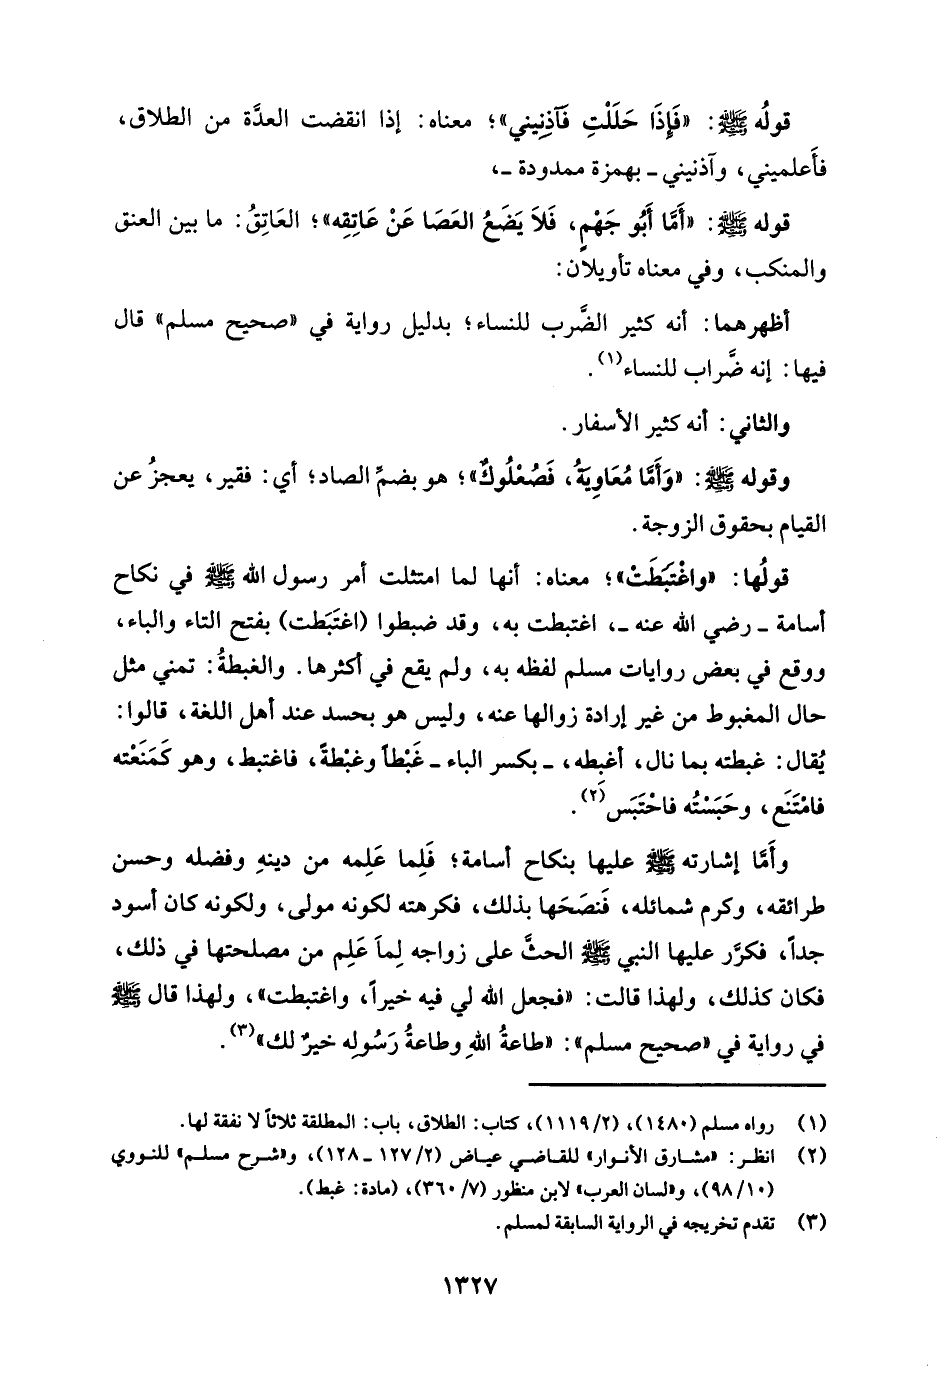 قولُه ﷺ: «فَإِذَا حَلَلْتِ فَآذِنِيني»؛ معناه: إذا انقضت العدَّة من الطلاق،
فأَعلميني، وآذنيني ـ بهمزة ممدودة ـ،
قوله ﷺ: «أَمَّا أَبُو جَهْمٍ، فَلاَ يَضَعُ العَصَا عَنْ عَاتِقِه»؛ العَاتِقُ: ما بين العنق
والمنكب، وفي معناه تأويلان:
أظهرهما: أنه كثير الضَّرب للنساء؛ بدليل رواية في «صحيح مسلم» قال
فيها: إنه ضَّراب للنساء(١).
والثاني: أنه كثير الأسفار.
وقوله ﷺ: «وَأَمَّا مُعَاوِيَةُ، فَصُعْلُوكٌ»؛ هو بضمِّ الصاد؛ أي: فقير، يعجزُ عن
القيام بحقوق الزوجة.
قولُها: «واغْتبَطَتْ»؛ معناه: أنها لما امتثلت أمر رسول الله ﷺ في نكاح
أسامة ـ رضي الله عنه ـ، اغتبطت به، وقد ضبطوا (اغتَبَطت) بفتح التاء والباء،
ووقع في بعض روايات مسلم لفظه به، ولم يقع في أكثرها. والغبطةُ: تمني مثل
حال المغبوط من غير إرادة زوالها عنه، وليس هو بحسد عند أهل اللغة، قالوا:
يُقال: غبطته بما نال، أغبطه، ـ بكسر الباء ـ غَبْطاً وغبْطةً، فاغتبط، وهو كَمَنَعْته
فامْتَنَع، وحَبَسْتُه فاحْتَبَس(٢).
وأَمَّا إشارته ﷺ عليها بنكاح أسامة؛ فَلِما عَلِمه من دينهِ وفضله وحسن
طرائقه، وكرم شمائله، فَنصَحَها بذلك، فكرهته لكونه مولى، ولكونه كان أسود
جداً، فكرَّر عليها النبي ﷺ الحثَّ على زواجه لِماَ عَلِم من مصلحتها في ذلك،
فكان كذلك، ولهذا قالت: «فجعل الله لي فيه خيراً، واغتبطت»، ولهذا قال ﷺ
في رواية في «صحيح مسلم»: «طاعةُ اللهِ وطاعةُ رَسُولِه خيرٌ لك»(٣).
(١) رواه مسلم (١٤٨٠)، (٢/ ١١١٩)، كتاب: الطلاق، باب: المطلقة ثلاثاً لا نفقة لها.
(٢) انظر: «مشارق الأنوار» للقاضي عياض (٢/ ١٢٧ ـ ١٢٨)، و«شرح مسلم» للنووي
(١٠/ ٩٨)، و«لسان العرب» لابن منظور (٧/ ٣٦٠)، (مادة: غبط).
(٣) تقدم تخريجه في الرواية السابقة لمسلم.
١٣٢٧